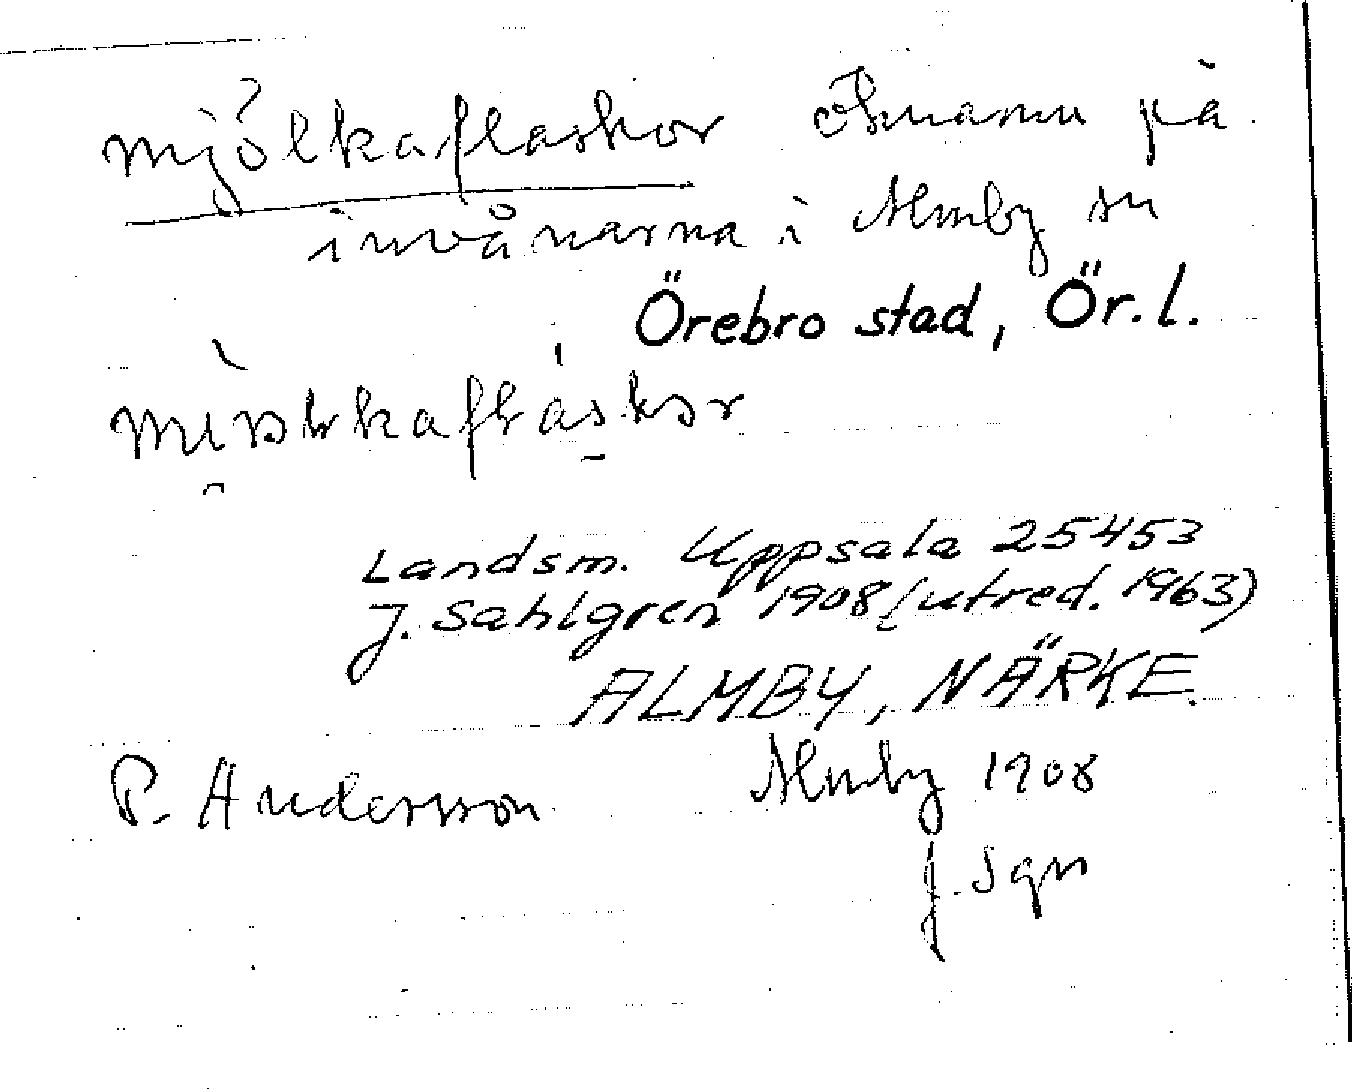 mjölkaflaskor öknamn på
invånarna i Almby sn
Örebro stad, Ör.l.
Landsm. Uppsala 25453
J. Sahlgren 1908 (utred. 1963)
ALMBY, NÄRKE.
P. Andersson Almby 1908
J. Sgn